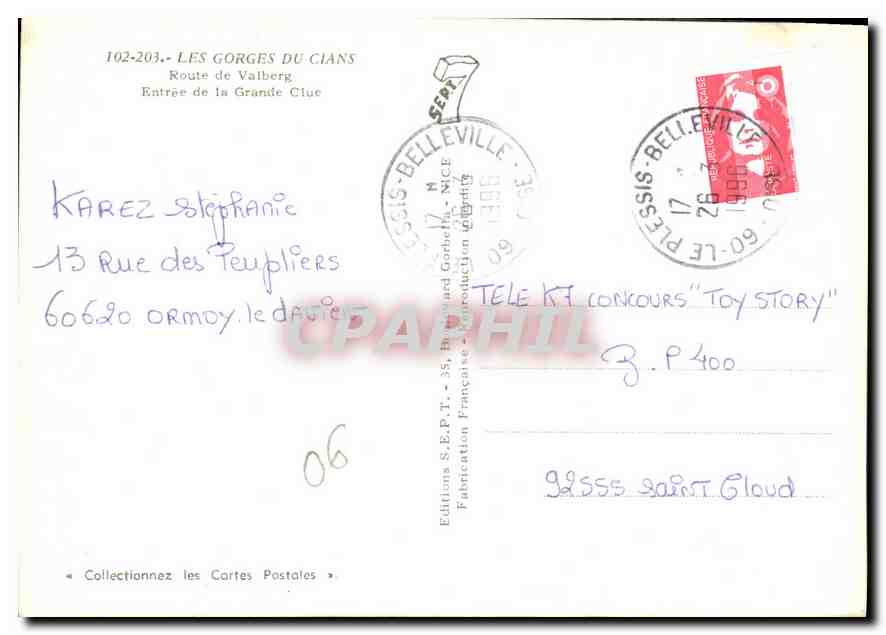 102-203.- LES GORGES DU CIANS
Route de Valberg
Entrée de la Grande Clue
SEPT
60-LE PLESSIS-BELLEVILLE · OISE
17 H
26 -3
1996
60-LE PLESSIS-BELLEVILLE · OISE
17
26 3
1996
REPUBLIQUE FRANÇAISE
LA POSTE
KAREZ Stéphanie
13 Rue des Peupliers
60620 ORMOY. le davien
TELE K7 CONCOURS "TOY STORY"
B. P 400
92555 SAINT Cloud
06
Editions S.E.P.T. - 35, Gorbella - NICE
Fabrication Française - Reproduction interdite
CPAPHIL
« Collectionnez les Cartes Postales ».